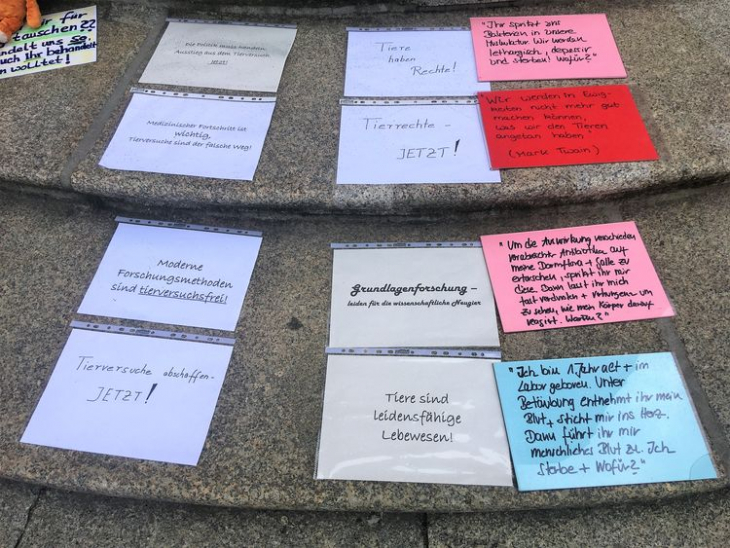 ir für
tauschen??
ndelt uns so,
uch ihr behandelt
n wolltet!
Die Politik muss handeln.
Ausstieg aus dem Tierversuch
JETZT!
Medizinischer Fortschritt ist
wichtig,
Tierversuche sind der falsche Weg!
Tiere
haben
Rechte!
Tierrechte -
JETZT!
"Ihr spritzt uns
Bakterien in unsere
Muskulatur. Wir werden
lethargisch, depressiv
und sterben! Wofür?"
"Wir werden in Ewig-
keiten nicht mehr gut
machen können,
was wir den Tieren
angetan haben."
(Mark Twain)
Moderne
Forschungsmethoden
sind tierversuchsfrei!
Tierversuche abschaffen-
JETZT!
Grundlagenforschung –
leiden für die wissenschaftliche Neugier
Tiere sind
leidensfähige
Lebewesen!
"Um die Auswirkung verschieden
verabreichter Antibiotika auf
meine Darmflora + Galle zu
erforschen, spritzt ihr mir
diese. Dann lasst ihr mich
fast verdursten + verhungern um
zu sehen, wie mein Körper darauf
reagiert. Warum?"
"Ich bin 1 Jahr alt + im
Labor geboren. Unter
Betäubung entnehmt ihr mein
Blut + sticht mir ins Herz.
Dann führt ihr mir
menschliches Blut zu. Ich
sterbe + Wofür?"